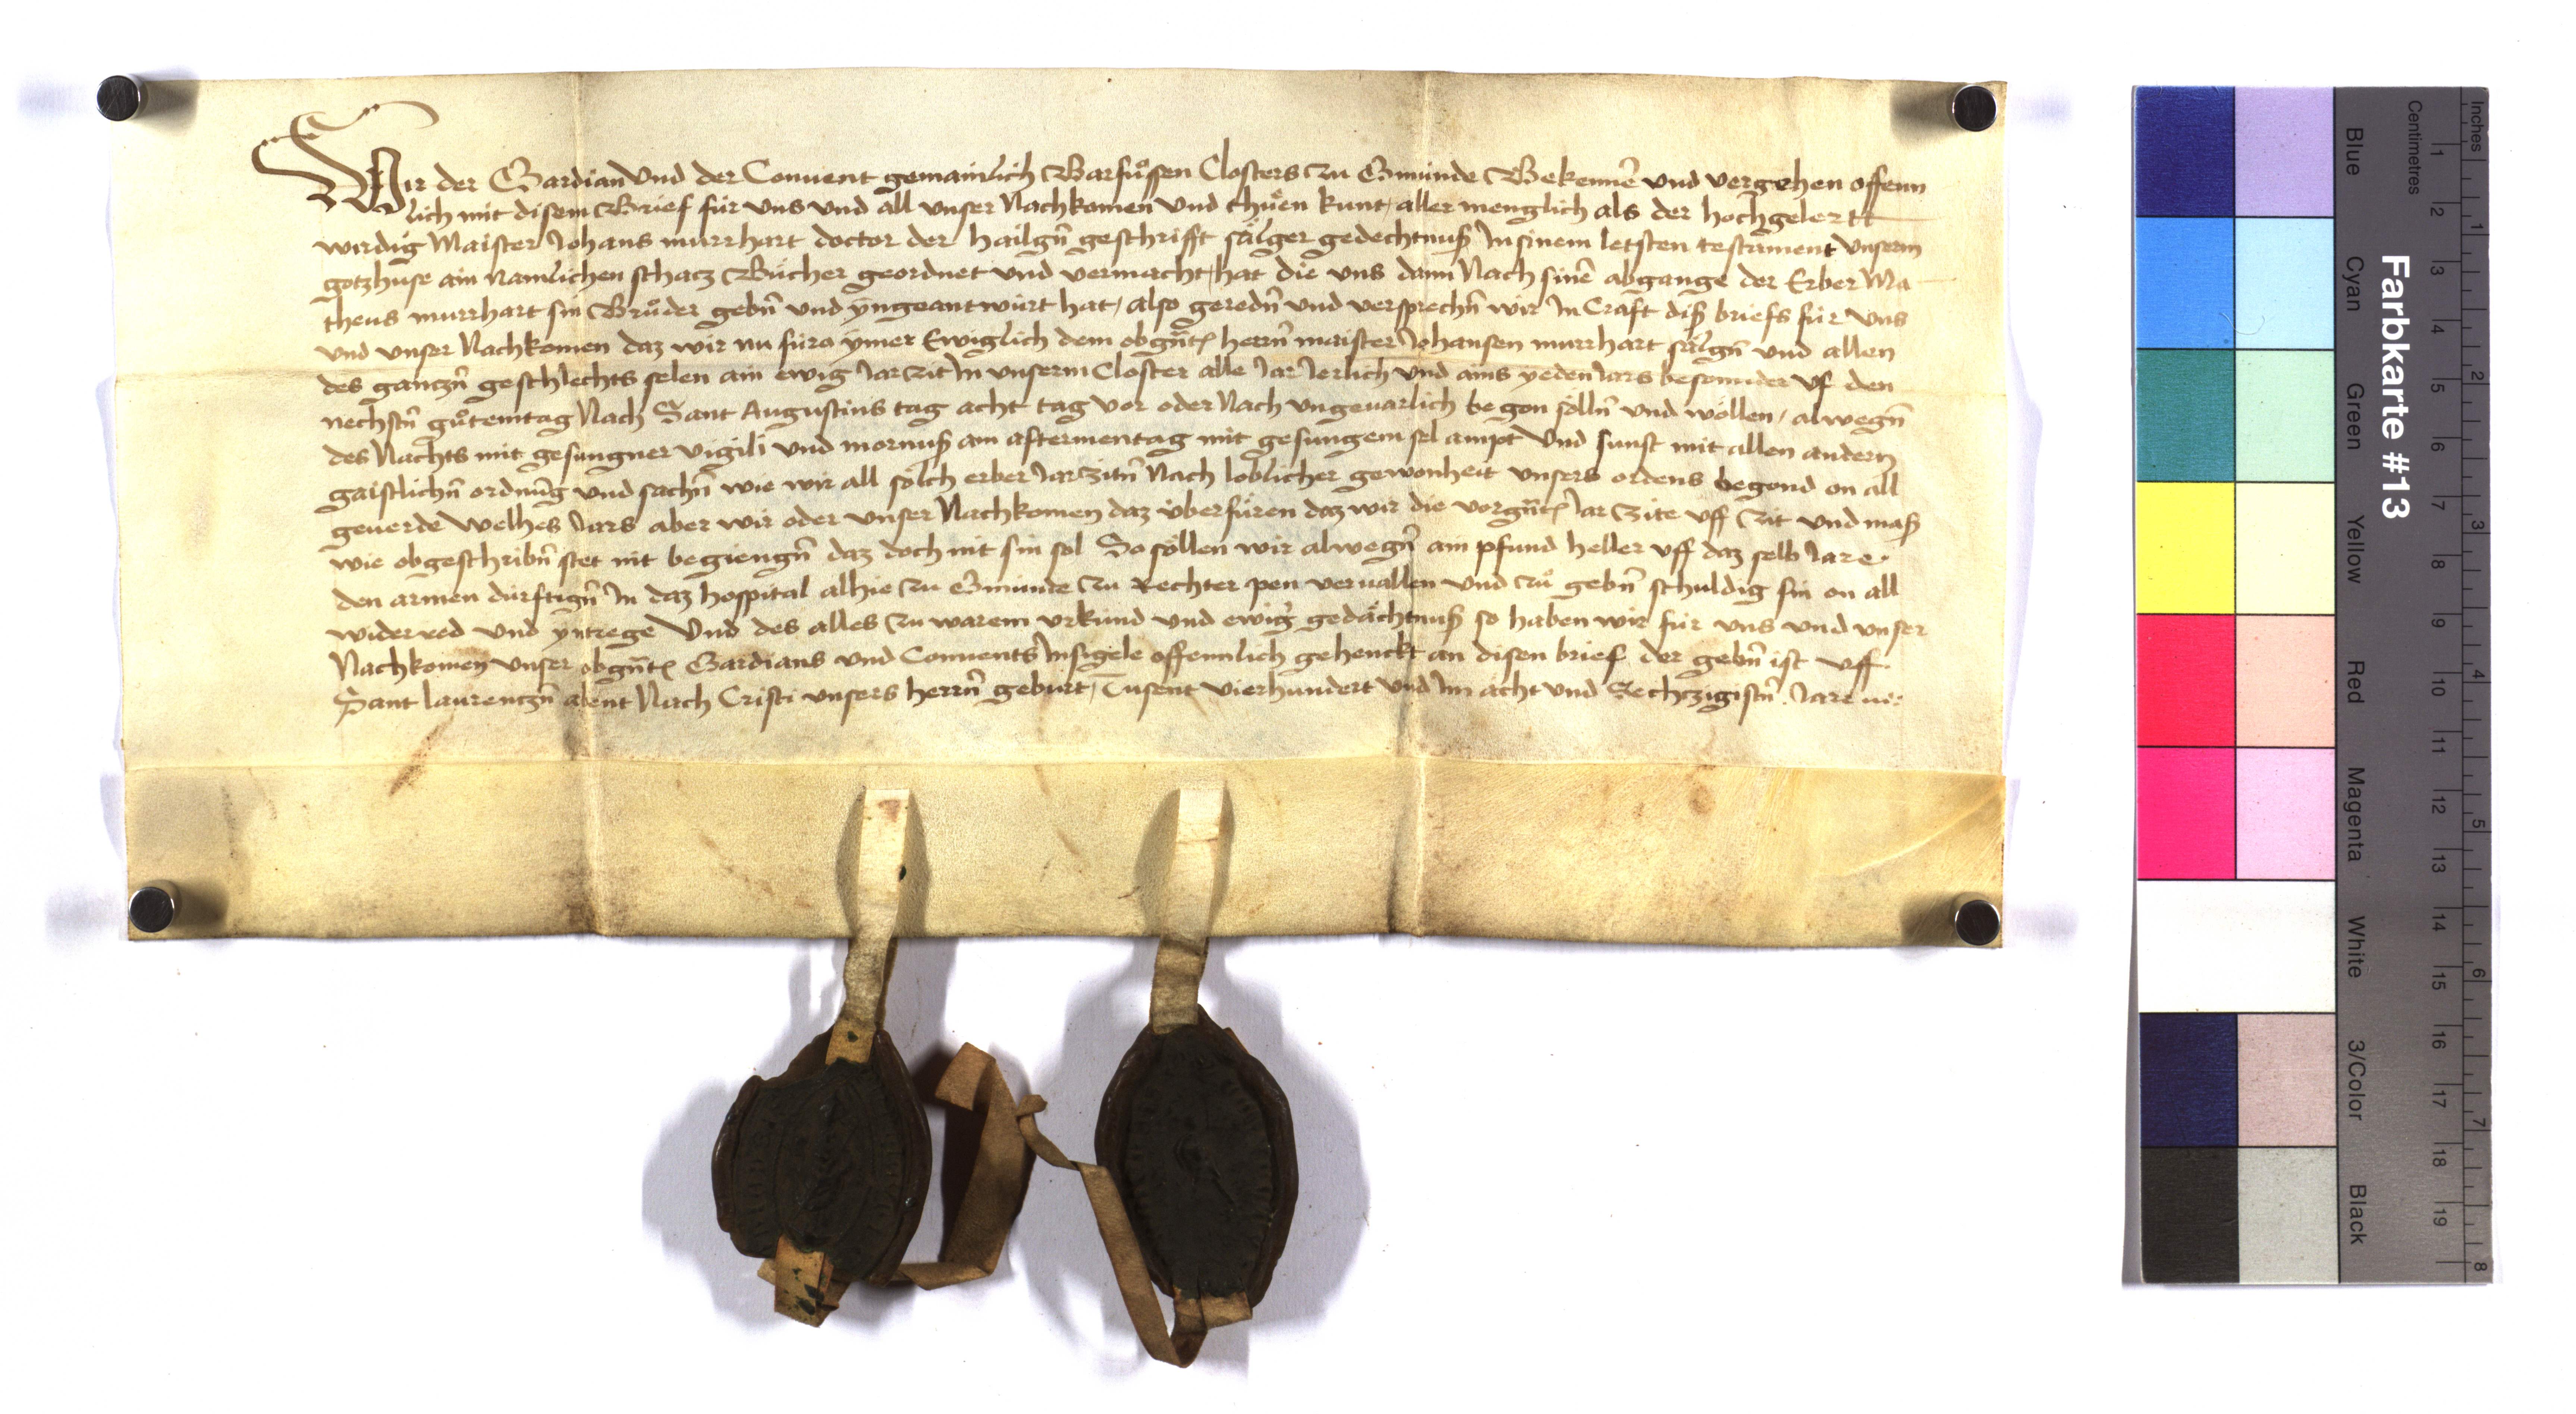 Wir der Gardian Und der Conuent gemainlich Barfůssen Closters zu Gmünde Bekennē und vergehen offenn
lich mit disem Brief für uns und all unser Nachkomen Und thůen kunt, aller menglich als der hochgelertt
wirdig Maister Johans murrhart doctor der hailgn̄ geschrifft sälger gedechtnuß In sinem letsten testament Unserm
gotzhuse ain namlichen schacz Bücher geordnet und vermacht hat die uns dann Nach sinē abgange der Erber Ma
theus murrhart sin Brůder gebn̄ und yngeantwürt hat, also geredn̄ und versprechn̄ wir In Craft diß briefs für Uns
und unser Nachkomen daz wir nu füro ymer Ewiglich dem obgn̄tē herrn̄ maister Johansen murrhart sälgn̄ und allen
des ganczn̄ geschlechts selen ain ewig Jarzit In unserm Closter alle Jar Jerlich Und ains yeden Jars besonnder uf den
nechstn̄ gůtemtag Nach Sant Augustins tag acht tag vor oder Nach ungeuarlich begon sölln̄ und wöllen, alwegn̄
des Nachts mit gesungner vigili und mornuß am aftermentag mit gesungem sel ampt Und sunst mit allen andern
gaistlichn̄ ordnūg und sachn̄ wie wir all sölch erber Jarzitn̄ Nach loblicher gewonheit unsers ordens begond on all
geuerde Welhes Jars aber wir oder unser Nachkomen daz überfüren daz wir die vorgn̄tē Jar zite uff zit und maß
wie obgeschribn̄ stet nit begiengn̄ daz doch nit sin sol So söllen wir alwegn̄ ain pfund heller uff daz selb Jare
den armen dürftign̄ In daz hospital alhie zu Gmünde zu Rechter pen veruallen und zů gebn̄ schuldig sin on all
widerred und yntrege Und des alles zu warem urkund und ewigr̄ gedächtnuß so haben wir für uns und unser
Nachkomen unser obgn̄tē Gardians und Conuents Insigele offennlich gehenckt an disen brief der gebn̄ ist uff
Sant laurenczn̄ abent Nach Cristi unsers herrn̄ geburt, Tusent vierhundert Und Im acht und Sechzigistn̄ Jare
Farbkarte #13
Blue
Cyan
Green
Yellow
Red
Magenta
White
3/Color
Black
Centimetres
1 2 3 4 5 6 7 8 9 10 11 12 13 14 15 16 17 18 19
Inches
1 2 3 4 5 6 7 8